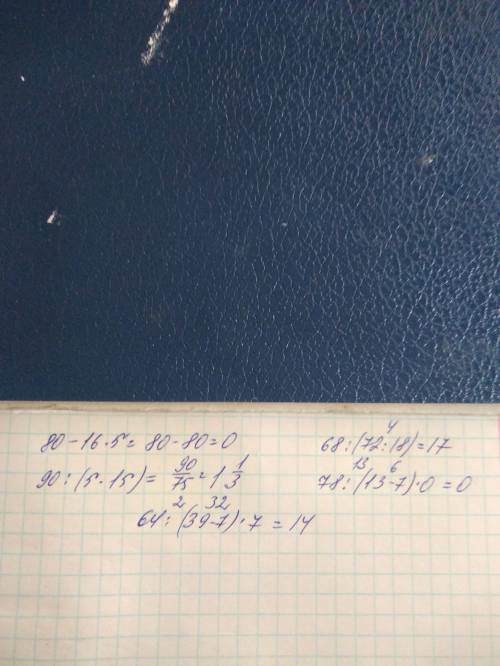 80 - 16 · 5 = 80 - 80 = 0
68 : (72 : 18) = 17
4
90 : (5 · 15) = 90/75 = 1 1/3
78 : (13 - 7) · 0 = 0
13 6
64 : (39 - 7) · 7 = 14
2 32